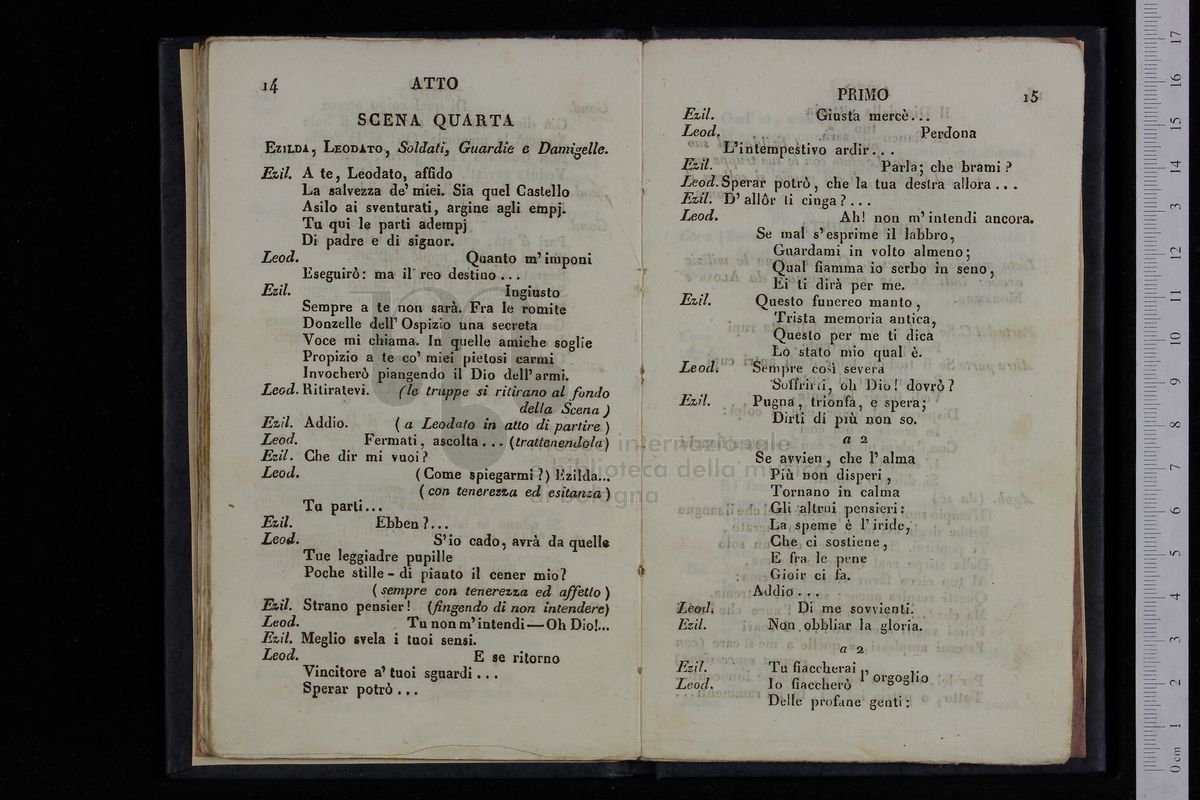 14 ATTO
SCENA QUARTA
EZILDA, LEODATO, Soldati, Guardie e Damigelle.
Ezil. A te, Leodato, affido
La salvezza de' miei. Sia quel Castello
Asilo ai sventurati, argine agli empj.
Tu qui le parti adempj
Di padre e di signor.
Leod. Quanto m'imponi
Eseguirò: ma il reo destino...
Ezil. Ingiusto
Sempre a te non sarà. Fra le romite
Donzelle dell' Ospizio una secreta
Voce mi chiama. In quelle amiche soglie
Propizio a te co' miei pietosi carmi
Invocherò piangendo il Dio dell'armi.
Leod. Ritiratevi. (le truppe si ritirano al fondo
della Scena)
Ezil. Addio. (a Leodato in atto di partire)
Leod. Fermati, ascolta... (trattenendola)
Ezil. Che dir mi vuoi?
Leod. (Come spiegarmi?) Ezilda...
(con tenerezza ed esitanza)
Tu parti...
Ezil. Ebben?...
Leod. S'io cado, avrà da quelle
Tue leggiadre pupille
Poche stille - di pianto il cener mio?
(sempre con tenerezza ed affetto)
Ezil. Strano pensier! (fingendo di non intendere)
Leod. Tu non m'intendi — Oh Dio!...
Ezil. Meglio svela i tuoi sensi.
Leod. E se ritorno
Vincitore a' tuoi sguardi...
Sperar potrò...
PRIMO 15
Ezil. Giusta mercè...
Leod. Perdona
L'intempestivo ardir...
Ezil. Parla; che brami?
Leod. Sperar potrò, che la tua destra allora...
Ezil. D'allôr ti cinga?...
Leod. Ah! non m'intendi ancora.
Se mal s'esprime il labbro,
Guardami in volto almeno;
Qual fiamma io serbo in seno,
Ei ti dirà per me.
Ezil. Questo funereo manto,
Trista memoria antica,
Questo per me ti dica
Lo stato mio qual è.
Leod. Sempre così severa
Soffrirti, oh Dio! dovrò?
Ezil. Pugna, trionfa, e spera;
Dirti di più non so.
a 2
Se avvien, che l'alma
Più non disperi,
Tornano in calma
Gli altrui pensieri:
La speme è l'iride,
Che ci sostiene,
E fra le pene
Gioir ci fa.
Addio...
Leod. Di me sovvienti.
Ezil. Non obbliar la gloria.
a 2
Ezil. Tu fiaccherai l'orgoglio
Leod. Io fiaccherò
Delle profane genti:
internazionale
biblioteca della musica
di bologna
17
16
15
14
13
12
11
10
9
8
7
6
5
4
3
2
1
0 cm